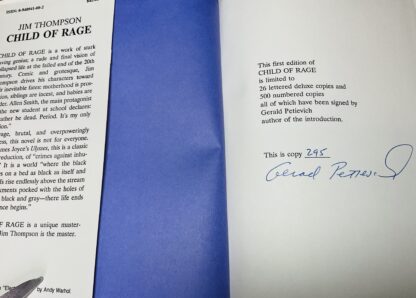 JIM THOMPSON
CHILD OF RAGE
OF RAGE is a work of stark
ving genius; a rude and final vision of
ollapsed life at the failed end of the 20th
ntury. Comic and grotesque, Jim
mpson drives his characters toward
inevitable fates: motherhood is pro-
tion, siblings are incest, and babies are
der. Allen Smith, the main protagonist
the new student at school declares:
other he dead. Period. It's my only
ion."
rage, brutal, and overpoweringly
ess, this novel is not for everyone.
ames Joyce's Ulysses, this is a classic
reduction, of "crimes against inhu-
It is a world "where the black
es on a bed as black as itself and
ds rise endlessly above the stream
ments pocked with the holes of
black and gray—there life ends
ence begins."
OF RAGE is a unique master-
Jim Thompson is the master.
by Andy Warhol
This first edition of
CHILD OF RAGE
is limited to
26 lettered deluxe copies and
500 numbered copies
all of which have been signed by
Gerald Petievich
author of the introduction.
This is copy 295
Gerald Petievich